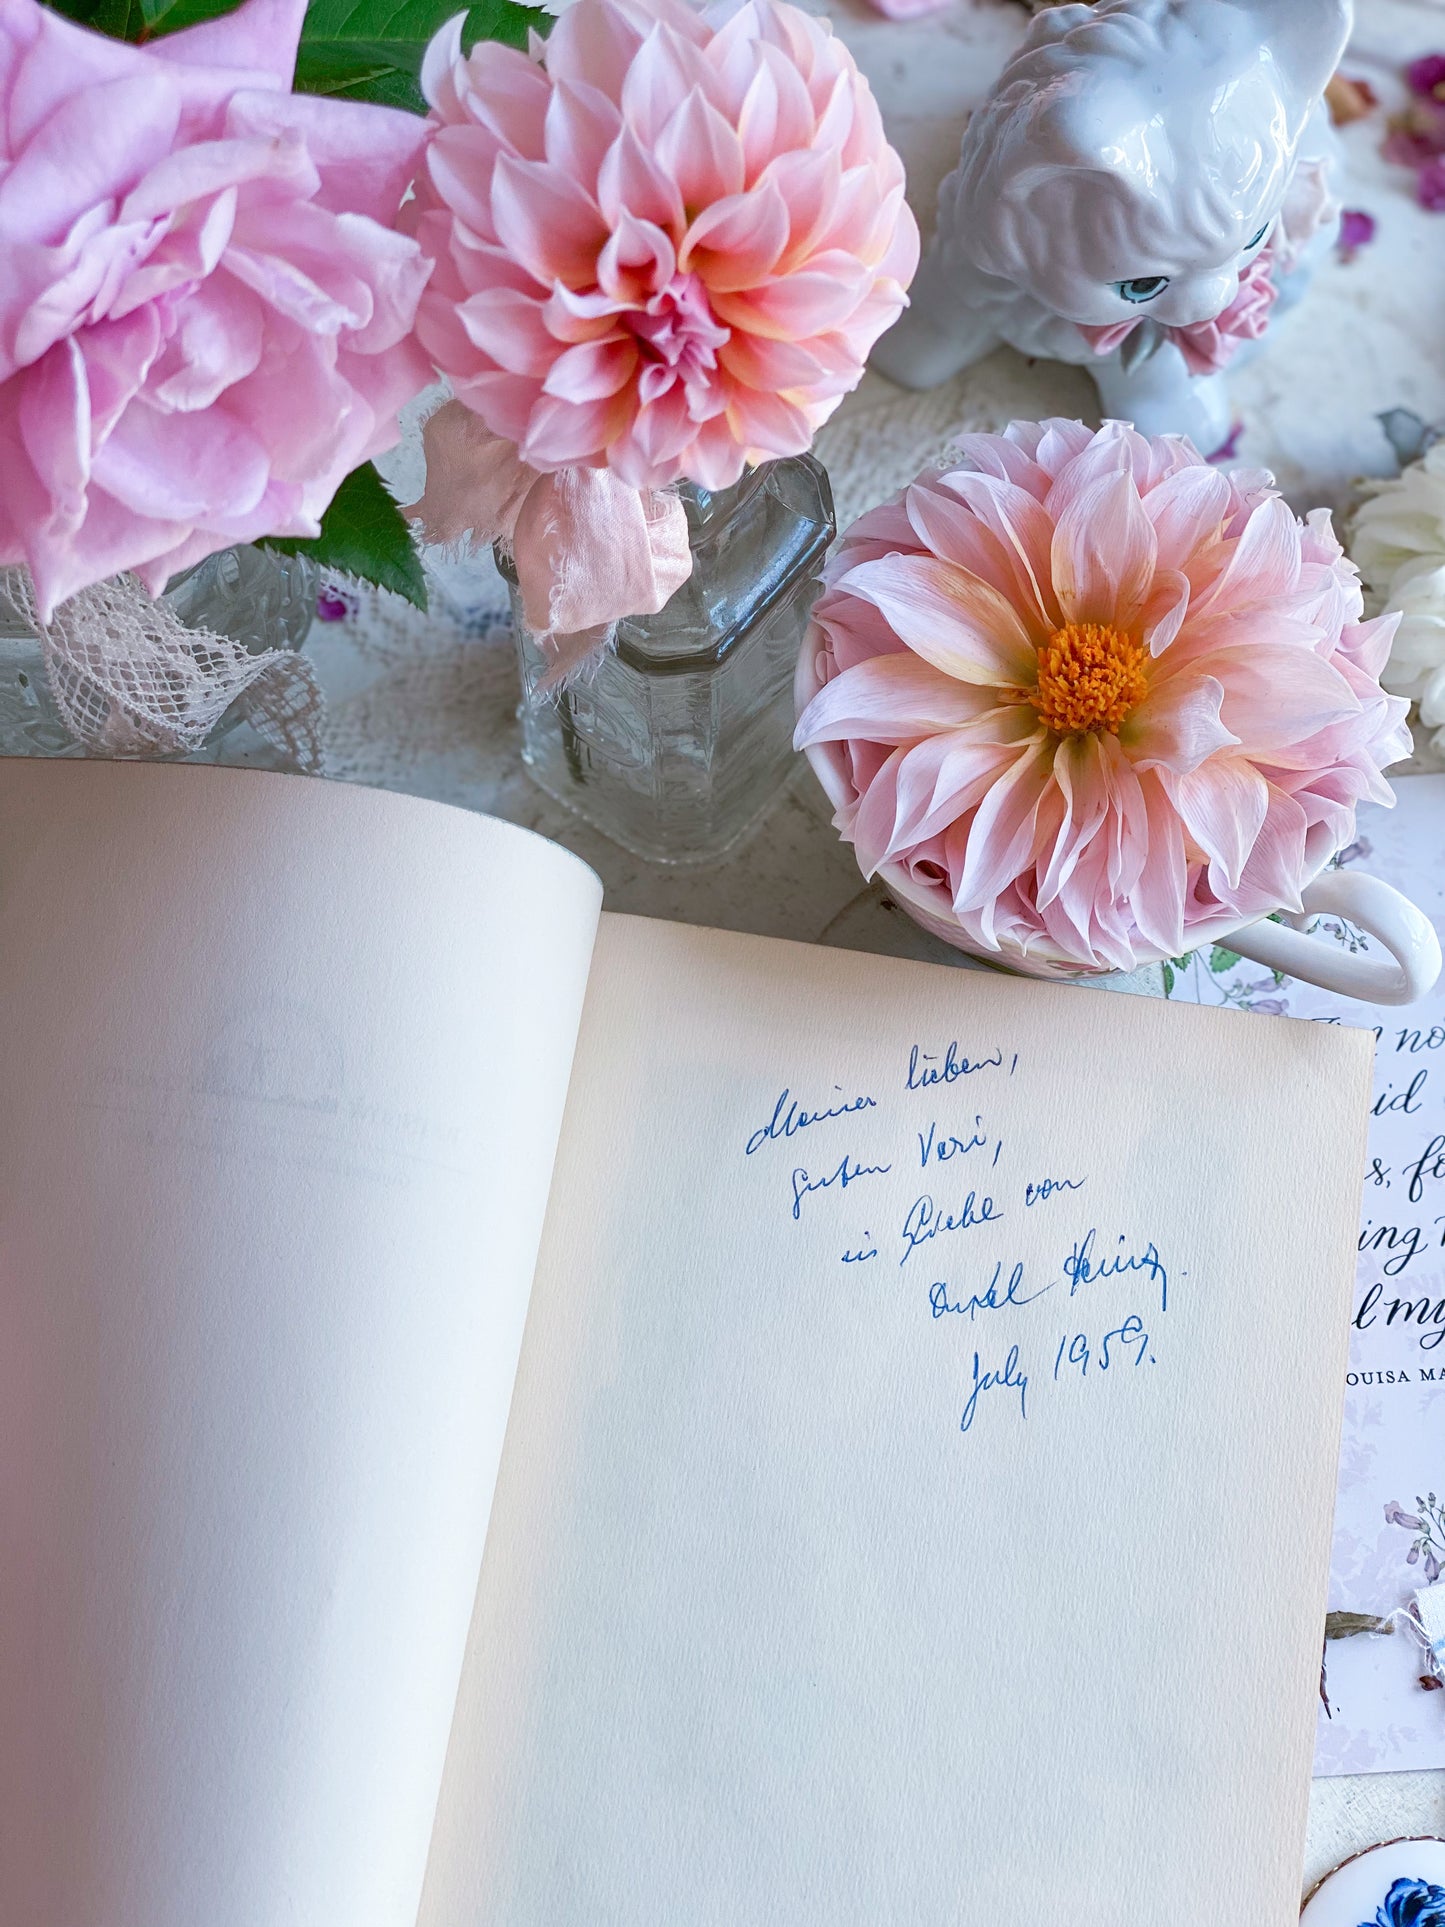 Meiner lieben,
guten Veri,
in Liebe von
Onkel Heinz.
July 1959.
no
id
s, fo
ing
l my
OUISA MA